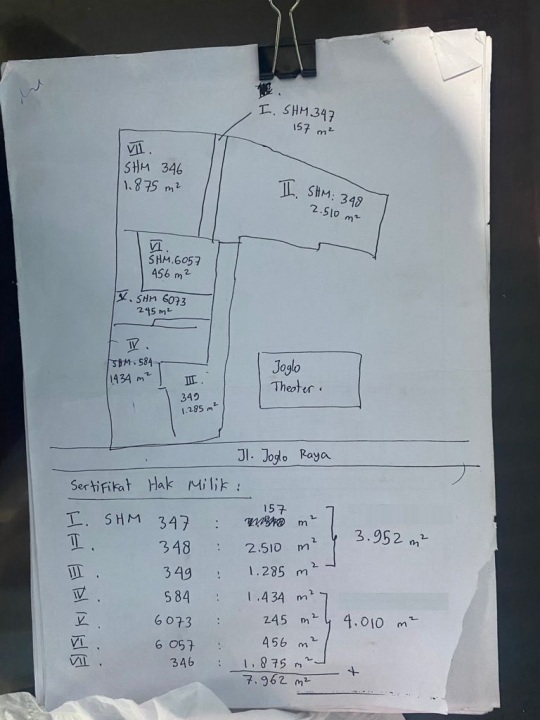 I. SHM.347
157 m²
VII.
SHM 346
1.875 m²
II. SHM: 348
2.510 m²
VI
SHM.6057
456 m²
V. SHM 6073
245 m²
IV.
SHM.584
1434 m²
III.
349
1.285 m²
Joglo
Theater.
Jl. Joglo Raya
Sertifikat Hak Milik :
I. SHM 347 : 157 m²
II. 348 : 2.510 m²
3.952 m²
III. 349 : 1.285 m²
IV. 584 : 1.434 m²
V. 6073 : 245 m²
4.010 m²
VI. 6057 : 456 m²
VII. 346 : 1.875 m²
+
7.962 m²